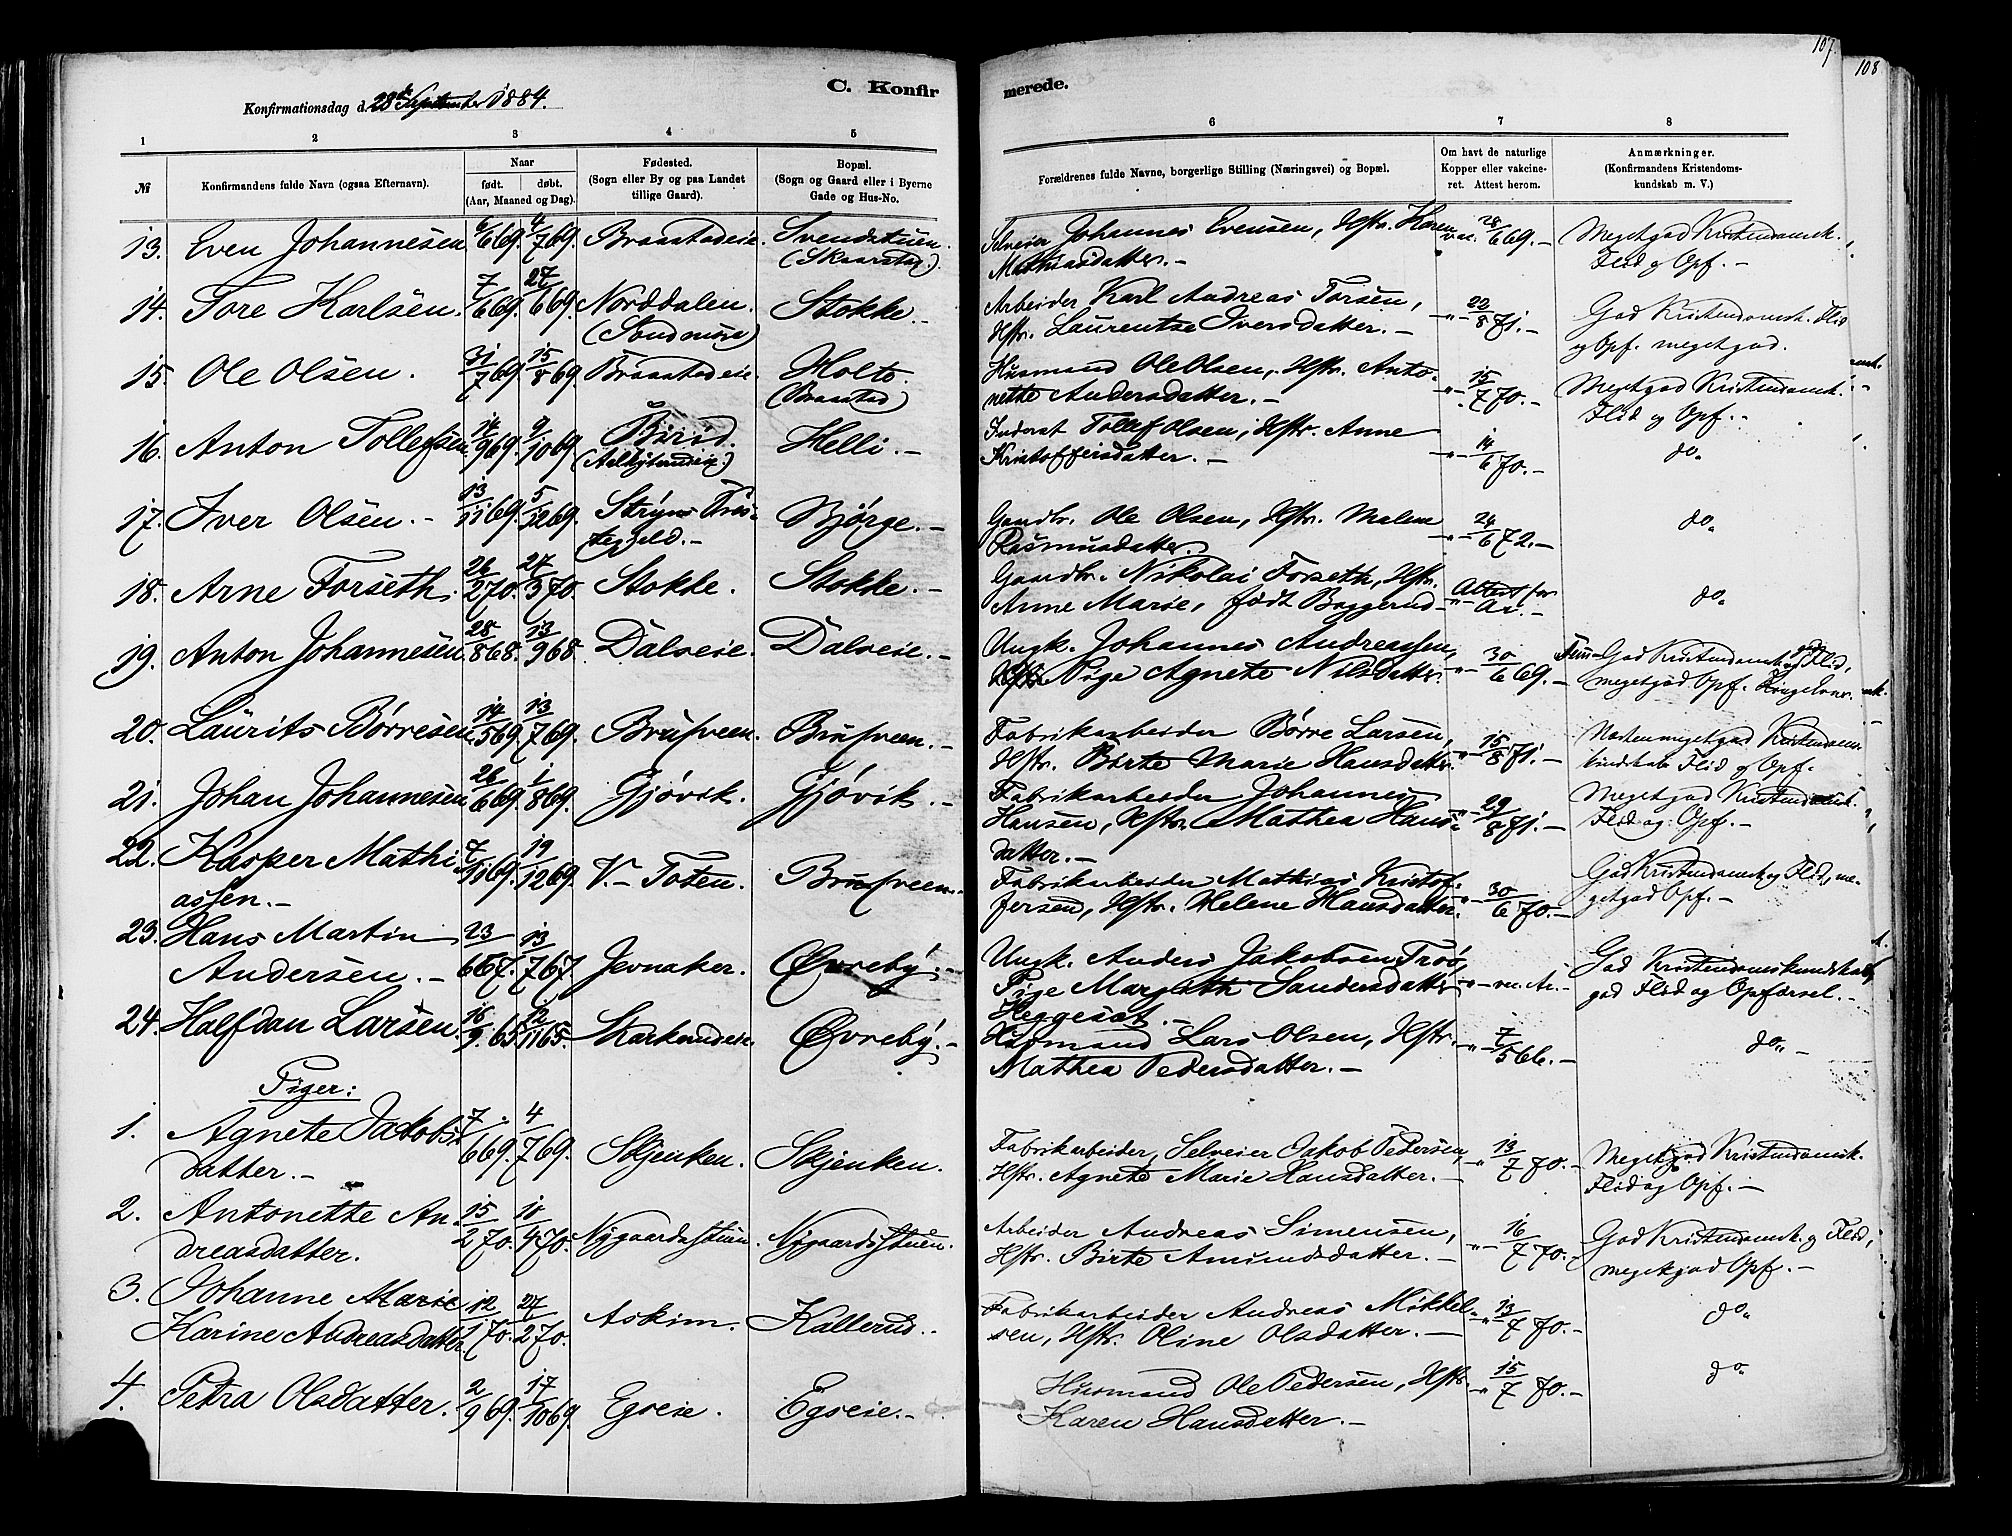 107.
108
C. Konfir
merede.
Konfirmationsdag d. 28de September 1884.
1 2 3 4 5 6 7 8
№ Konfirmandens fulde Navn (ogsaa Efternavn).
Naar
født. døbt.
(Aar, Maaned og Dag).
Fødested.
(Sogn eller By og paa Landet
tillige Gaard).
Bopæl.
(Sogn og Gaard eller i Byerne
Gade og Hus-No.
Forældrenes fulde Navne, borgerlige Stilling (Næringsvei) og Bopæl.
Om havt de naturlige
Kopper eller vakcine-
ret. Attest herom.
Anmærkninger.
(Konfirmandens Kristendoms-
kundskab m. V.)
13. Even Johannesen 6/6 69. 4/7 69. Braastadeie. Svendstuen. (Skaarstad.) Selveier Johannes Evensen, Hstr. Karen Mathiasdatter.- vac. 28/6 69.- Megetgod Kristendomsk. Flid og Opf.-
14. Tore Karlsen. 7/6 69. 27/6 69. Norddalen. (Søndmøre) Stokke.- Arbeider Karl Andreas Torsen, Hstr. Laurentse Iversdatter.- "- 22/8 71.- God Kristendomsk. Flid og Opf. megetgod.
15. Ole Olsen. 31/7 69. 15/8 69. Braastadeie. Holte. (Braastad) Husmand Ole Olsen, Hstr. Antonette Andersdatter.- "- 15/7 70.- Megetgod Kristendomsk. Flid og Opf.-
16. Anton Tollefsen. 14/9 69. 9/10 69. Birid. Helli.- Inderst Tollef Olsen, Hstr. Anne Kristoffersdatter.- "- 14/6 70.- do.
17. Iver Olsen.- 13/11 69. 5/12 69. Stryns Præstegjeld.- Bjørge.- Gaardbr. Ole Olsen, Hstr. Malene Rasmusdatter. "- 24/6 72.- do.
18. Arne Forseth. 26/2 70. 27/3 70. Stokke. Stokke.- Gaardbr. Nikolai Forseth, Hstr. Anne Marie, født Baggerud "- Attest for Ar.- do.
19. Anton Johannesen. 28/8 68. 13/9 68. Dalseie. Dalseie.- Ungk. Johannes Andreassen, Pige Agnete Nilsdatter. "- 30/6 69.- God Kristendomsk. og Flid, megetgod Opf.
20. Laurits Børresen. 14/5 69. 13/7 69. Brufveen. Brufveen.- Fabrikarbeider Børre Larsen, Hstr. Birte Marie Hansdatter. "- 15/8 71.- Næsten megetgod Kristendomskundskab Flid og Opf.
21. Johan Johannesen 26/6 69. 1/8 69. Gjøvik. Gjøvik.- Fabrikarbeider Johannes Hansen, Hstr. Mathea Hansdatter.- "- 29/8 71.- Megetgod Kristendomsk. Flid og Opf.-
22. Kasper Mathiassen.- 7/11 69. 19/12 69. V.- Toten. Brufveen.- Fabrikarbeider Mathias Kristoffersen, Hstr. Helene Hansdatter. "- 30/6 70.- God Kristendomsk. og Flid, megetgod Opf.-
23. Hans Martin Andersen.- 23/6 67. 13/7 67. Jevnaker. Øvreby.- Ungk. Anders Jakobsen Trøs, Pige Margith Sandersdatter Heggesæt.- God Kristendomskundskab, god Flid og Opførsel.-
24. Halfdan Larsen. 16/9. 65. 12/11 65. Skarkerudeie. Øvreby.- Husmand Lars Olsen, Hstr. Mathea Pedersdatter.- "- 7/5 66.- do.-
Piger:
1. Agnete Jakobsdatter.- 7/6 69. 4/7 69. Skjenken. Skjenken. Fabrikarbeider, Selveier Jakob Pedersen, Hstr. Agnete Marie Hansdatter.- "- 13/7 70.- Megetgod Kristendomsk. Flid og Opf.-
2. Antonette Andreasdatter. 15/2 70. 10/4 70. Nygaardsstuen. Nygaardsstuen. Arbeider Andreas Simensen, Hstr. Birte Amundsdatter.- "- 16/7 70.- God Kristendomsk. og Flid, megetgod Opf.-
3. Johanne Marie Karine Andreasdatter. 12/1 70. 27/2 70. Askim. Kallerud.- Fabrikarbeider Andreas Mikkelsen, Hstr. Oline Olsdatter.- "- 13/7 70.- do.
4. Petra Olsdatter. 2/9 69. 17/10 69. Egseie. Egseie.- Husmand Ole Pedersen, Hstr. Karen Hansdatter.- "- 15/7 70.- do.